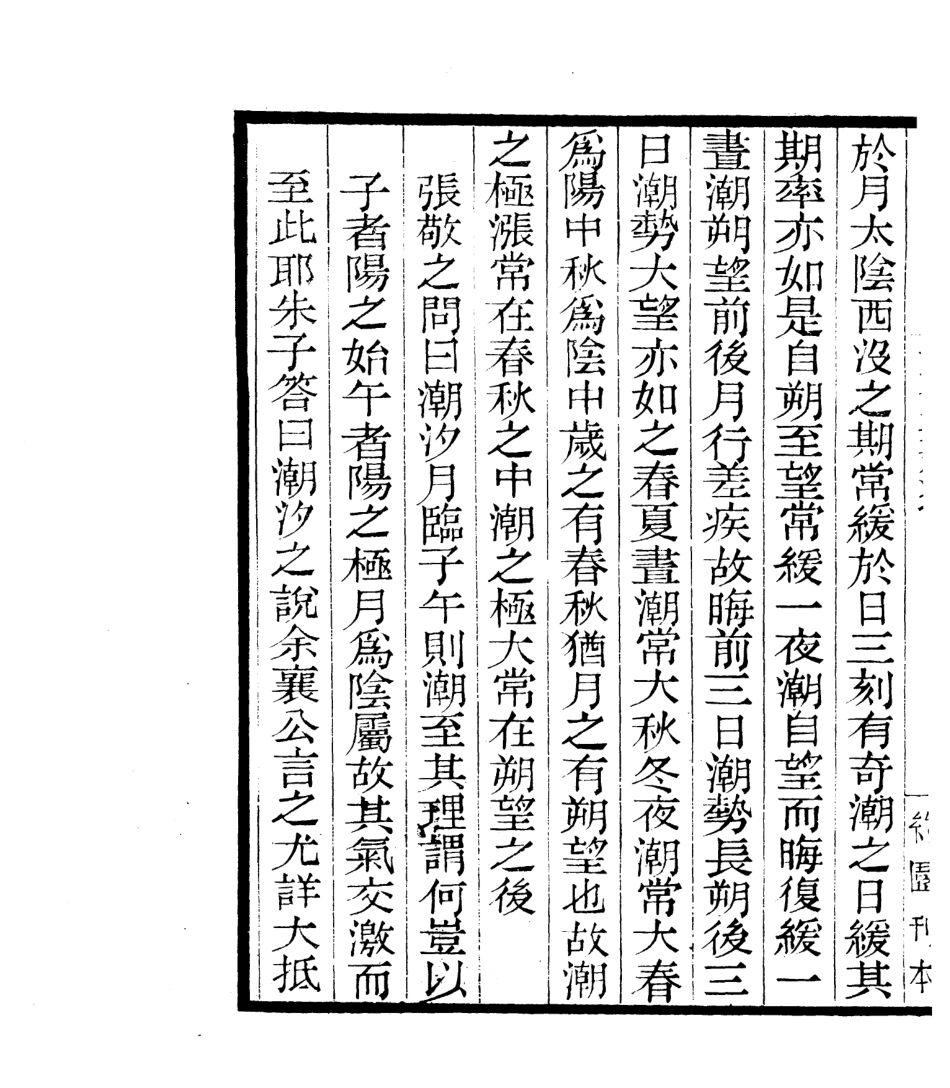 於月太陰西沒之期常緩於日三刻有奇潮之日緩其
期率亦如是自朔至望常緩一夜潮自望而晦復緩一
晝潮朔望前後月行差疾故晦前三日潮勢長朔後三
日潮勢大望亦如之春夏晝潮常大秋冬夜潮常大春
爲陽中秋爲陰中歲之有春秋猶月之有朔望也故潮
之極漲常在春秋之中潮之極大常在朔望之後
張敬之問曰潮汐月臨子午則潮至其理謂何豈以
子者陽之始午者陽之極月爲陰屬故其氣交激而
至此耶朱子答曰潮汐之說余襄公言之尤詳大抵
園刊本